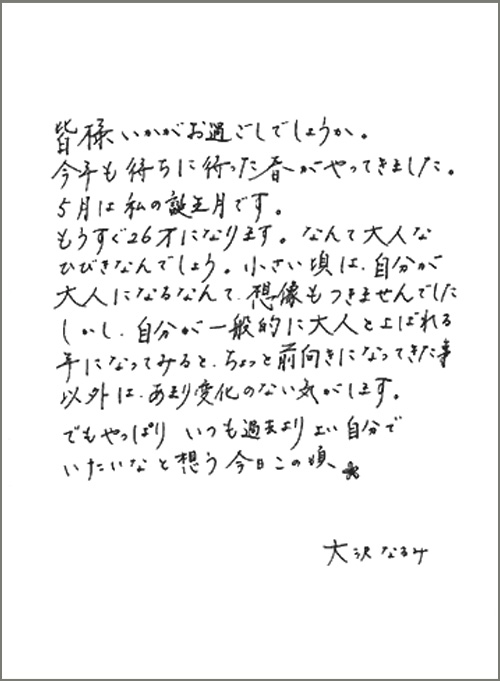 皆様いかがお過ごしでしょうか。
今年も待ちに待った春がやってきました。
5月は私の誕生月です。
もうすぐ26才になります。なんて大人な
ひびきなんでしょう。小さい頃は、自分が
大人になるなんて、想像もつきませんでした
しかし、自分が一般的に大人とよばれる
年になってみると、ちょっと前向きになってきた事
以外は、あまり変化のない気がします。
でもやっぱり いつも過去より よい自分で
いたいなと想う今日この頃、
大沢なるみ